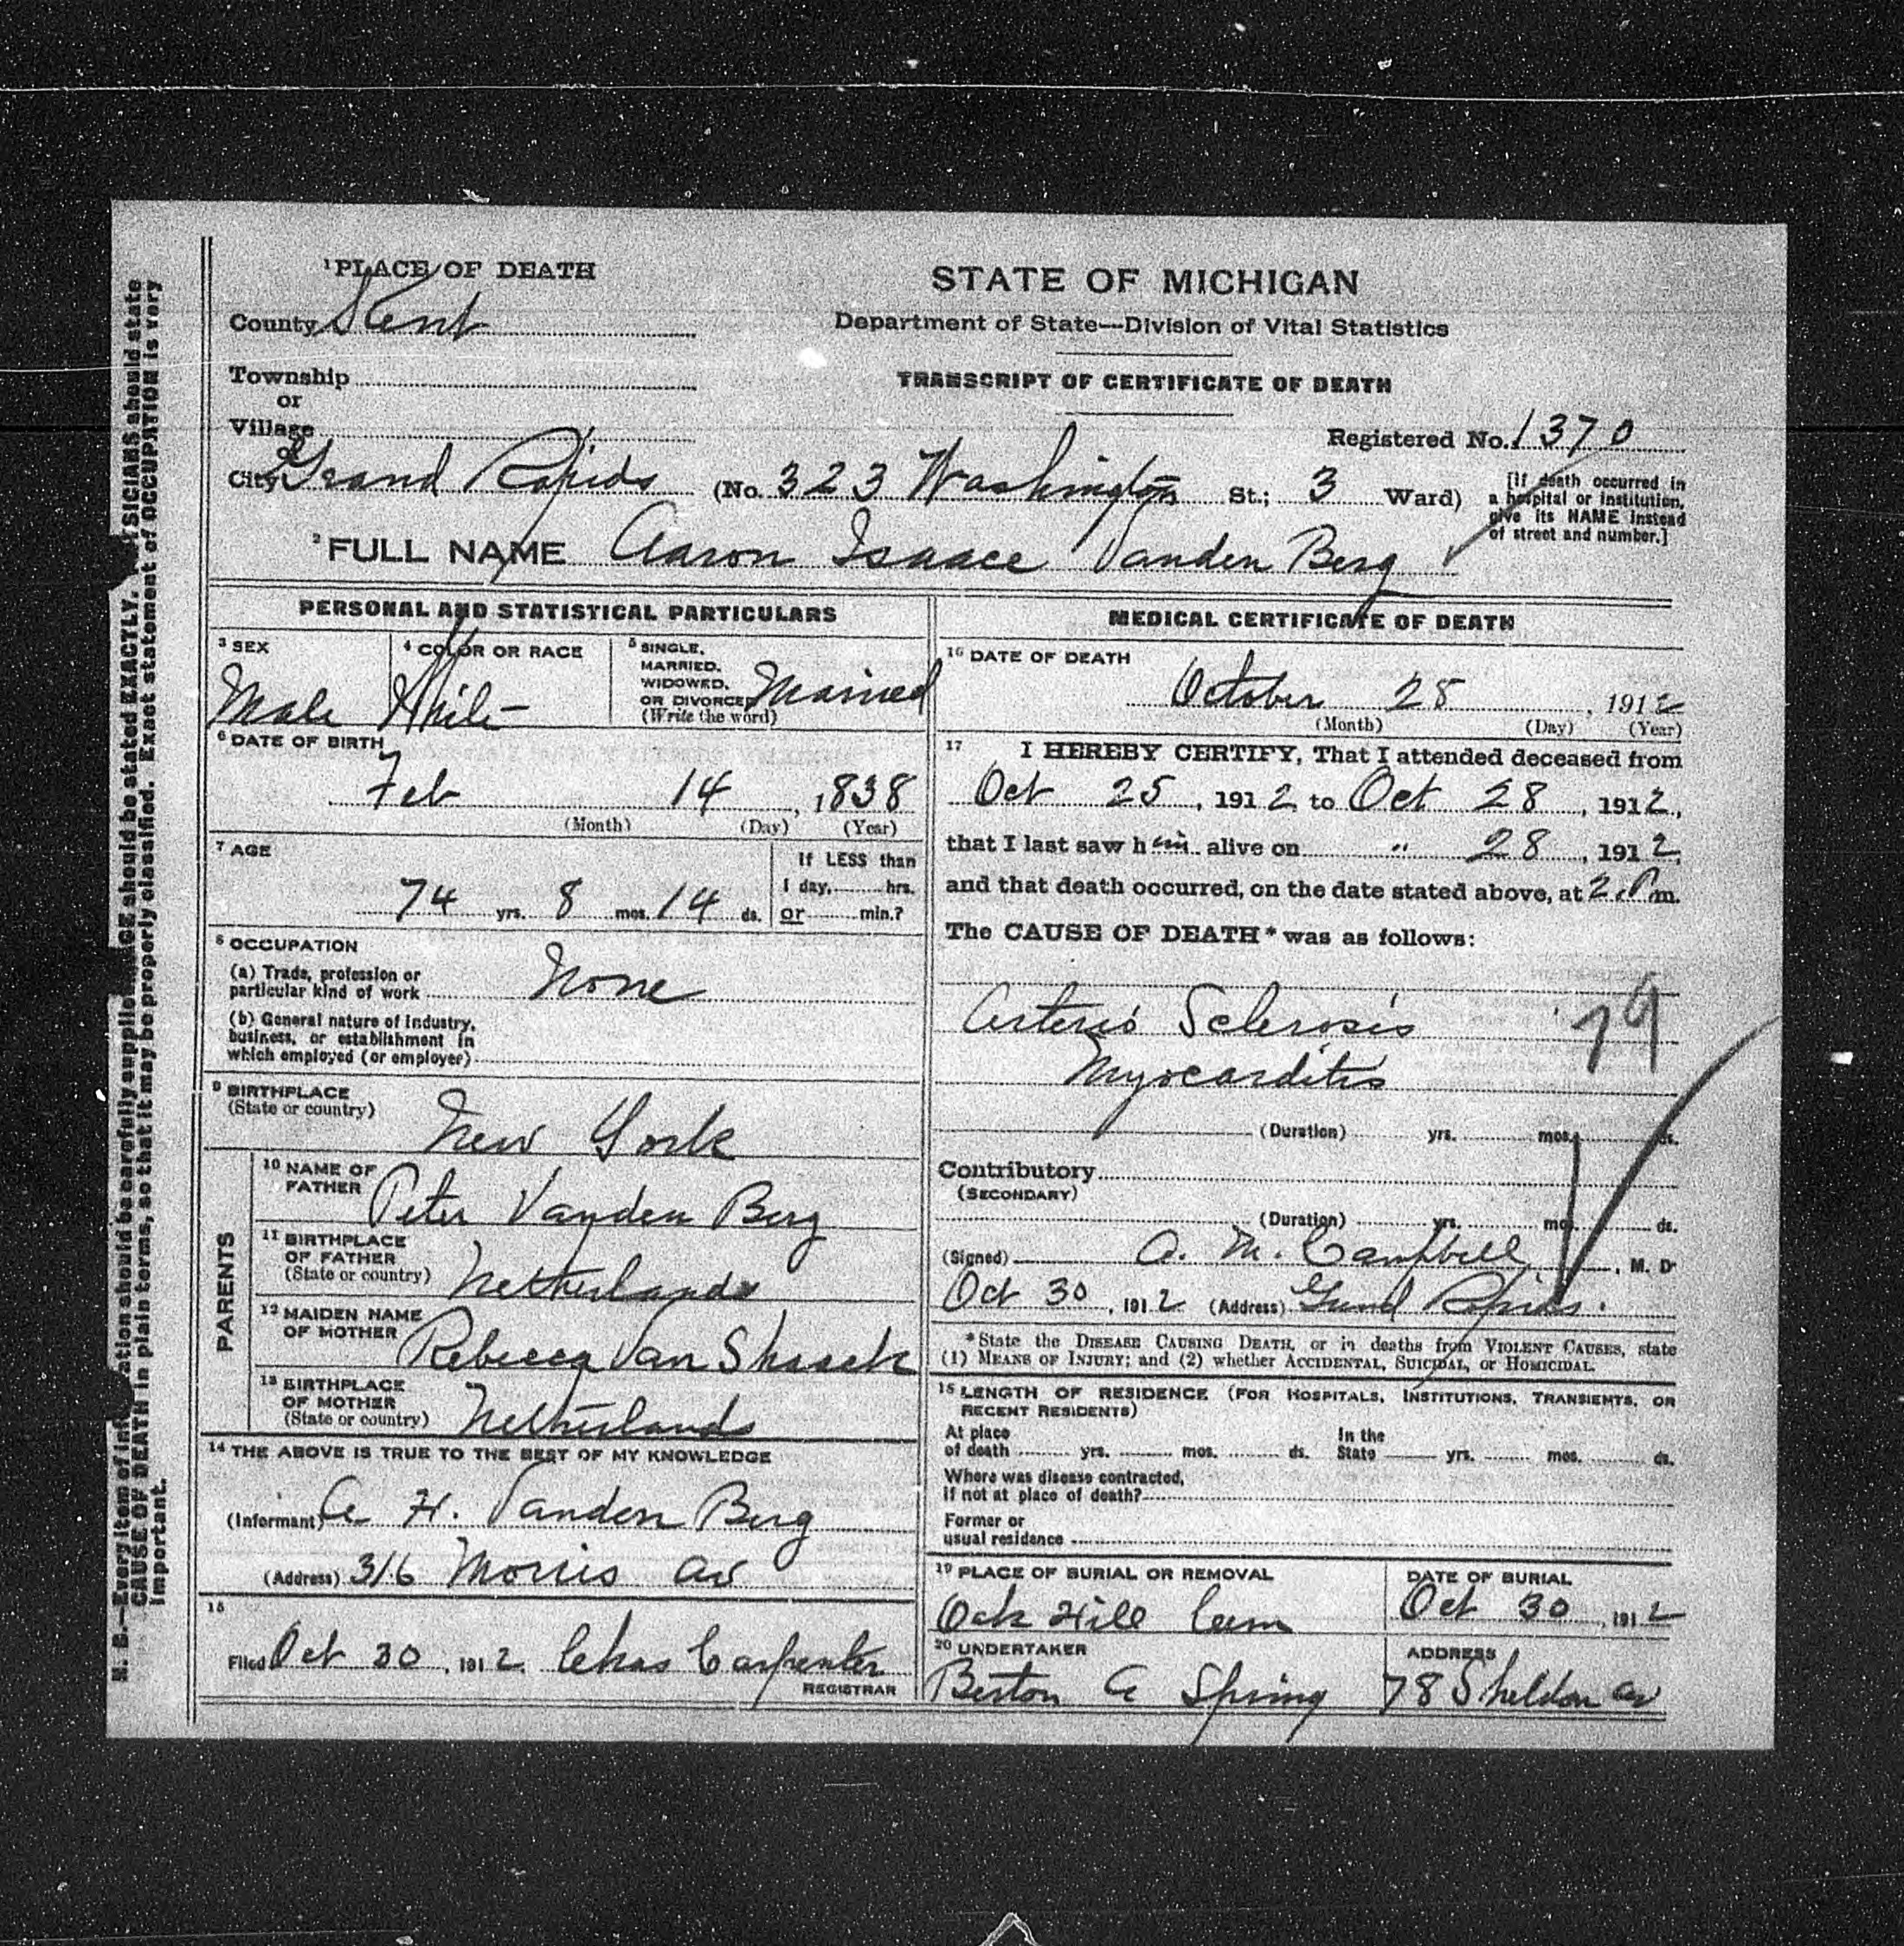 ¹PLACE OF DEATH
County Kent
Township
or
Village
or
City Grand Rapids (No. 323 Washington St.; 3 Ward)
STATE OF MICHIGAN
Department of State—Division of Vital Statistics
TRANSCRIPT OF CERTIFICATE OF DEATH
Registered No. 1370
[If death occurred in
a hospital or institution,
give its NAME instead
of street and number.]
²FULL NAME Aaron Isaace Vanden Berg
PERSONAL AND STATISTICAL PARTICULARS
³ SEX
Male
⁴ COLOR OR RACE
White
⁵ SINGLE,
MARRIED,
WIDOWED,
OR DIVORCED
(Write the word)
Married
⁶ DATE OF BIRTH
Feb 14, 1838
(Month) (Day) (Year)
⁷ AGE
74 yrs. 8 mos. 14 ds.
If LESS than
1 day, hrs.
or min.?
⁸ OCCUPATION
(a) Trade, profession or
particular kind of work None
(b) General nature of industry,
business, or establishment in
which employed (or employer)
⁹ BIRTHPLACE
(State or country)
New York
PARENTS
¹⁰ NAME OF
FATHER
Peter Vanden Berg
¹¹ BIRTHPLACE
OF FATHER
(State or country)
Netherlands
¹² MAIDEN NAME
OF MOTHER
Rebecca Van Shaack
¹³ BIRTHPLACE
OF MOTHER
(State or country)
Netherlands
¹⁴ THE ABOVE IS TRUE TO THE BEST OF MY KNOWLEDGE
(Informant) A H. Vanden Berg
(Address) 316 Morris av
¹⁵
Filed Oct 30, 1912. Chas Carpenter
REGISTRAR
MEDICAL CERTIFICATE OF DEATH
¹⁶ DATE OF DEATH
October 28, 1912
(Month) (Day) (Year)
¹⁷ I HEREBY CERTIFY, That I attended deceased from
Oct 25, 1912 to Oct 28, 1912,
that I last saw him alive on " 28, 1912,
and that death occurred, on the date stated above, at 2 P m.
The CAUSE OF DEATH* was as follows:
Arterio Sclerosis
79
Myocarditis
(Duration) yrs. mos. ds.
Contributory
(SECONDARY)
(Duration) yrs. mos. ds.
(Signed) A. M. Campbell, M. D.
Oct 30, 1912 (Address) Grand Rapids.
*State the DISEASE CAUSING DEATH, or in deaths from VIOLENT CAUSES, state
(1) MEANS OF INJURY; and (2) whether ACCIDENTAL, SUICIDAL, or HOMICIDAL.
¹⁸ LENGTH OF RESIDENCE (FOR HOSPITALS, INSTITUTIONS, TRANSIENTS, OR
RECENT RESIDENTS)
At place
of death yrs. mos. ds.
In the
State yrs. mos. ds.
Where was disease contracted,
if not at place of death?
Former or
usual residence
¹⁹ PLACE OF BURIAL OR REMOVAL
Oak Hill Cem
DATE OF BURIAL
Oct 30, 1912
²⁰ UNDERTAKER
Berton A Spring
ADDRESS
78 Sheldon av
N. B.—Every item of information should be carefully supplied. AGE should be stated EXACTLY. PHYSICIANS should state
CAUSE OF DEATH in plain terms, so that it may be properly classified. Exact statement of OCCUPATION is very
important.